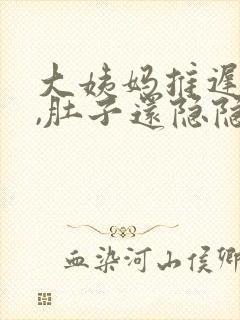 大姨妈推遲
,肚子還隐隐
血染河山侯卿